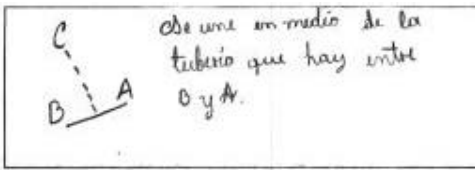 C
Se une en medio de la
tubería que hay entre
B y A.
A
B